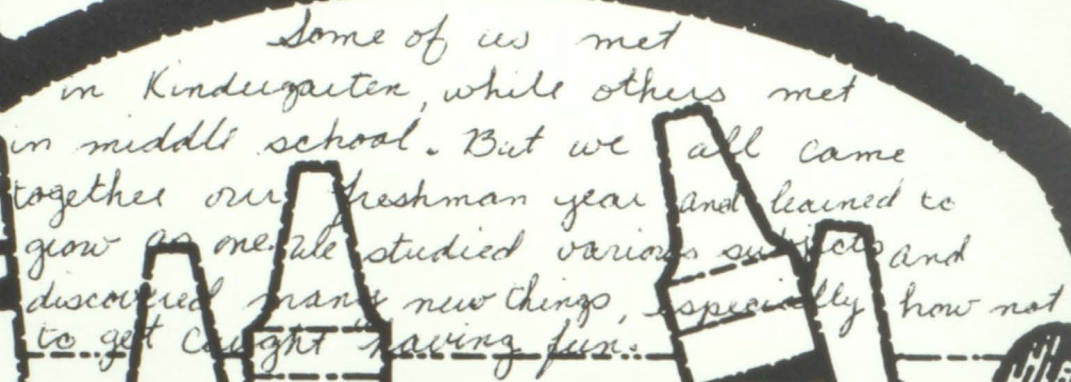 Some of us met
in Kindergarten, while others met
in middle school. But we all came
together our freshman year and learned to
grow as one. We studied various subjects and
discovered many new things, especially how not
to get caught "having fun.